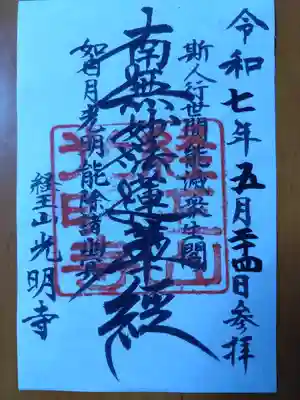 令和七年五月二十四日参拝
斯人行世間能滅衆生闇
南無妙法蓮華経
如日月光明能除諸幽冥
経王山光明寺